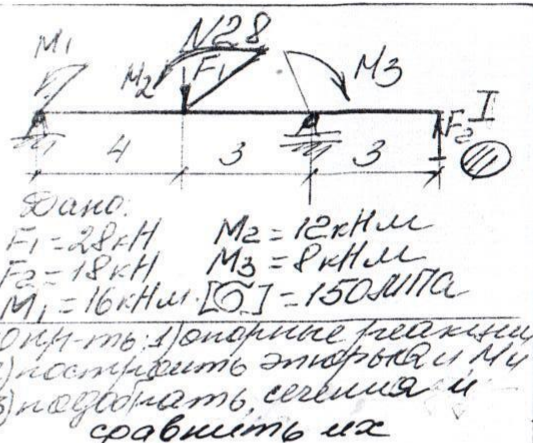 M1
N28
M2
F1
M3
F2
I
4 3 3
Дано:
F1=28кН M2=12кНм
F2=18кН M3=8кНм
M1=16кНм [σ]=150МПа
Опр-ть: 1) опорные реакции
2) построить эпюры Q и Mи
3) подобрать сечения и
сравнить их